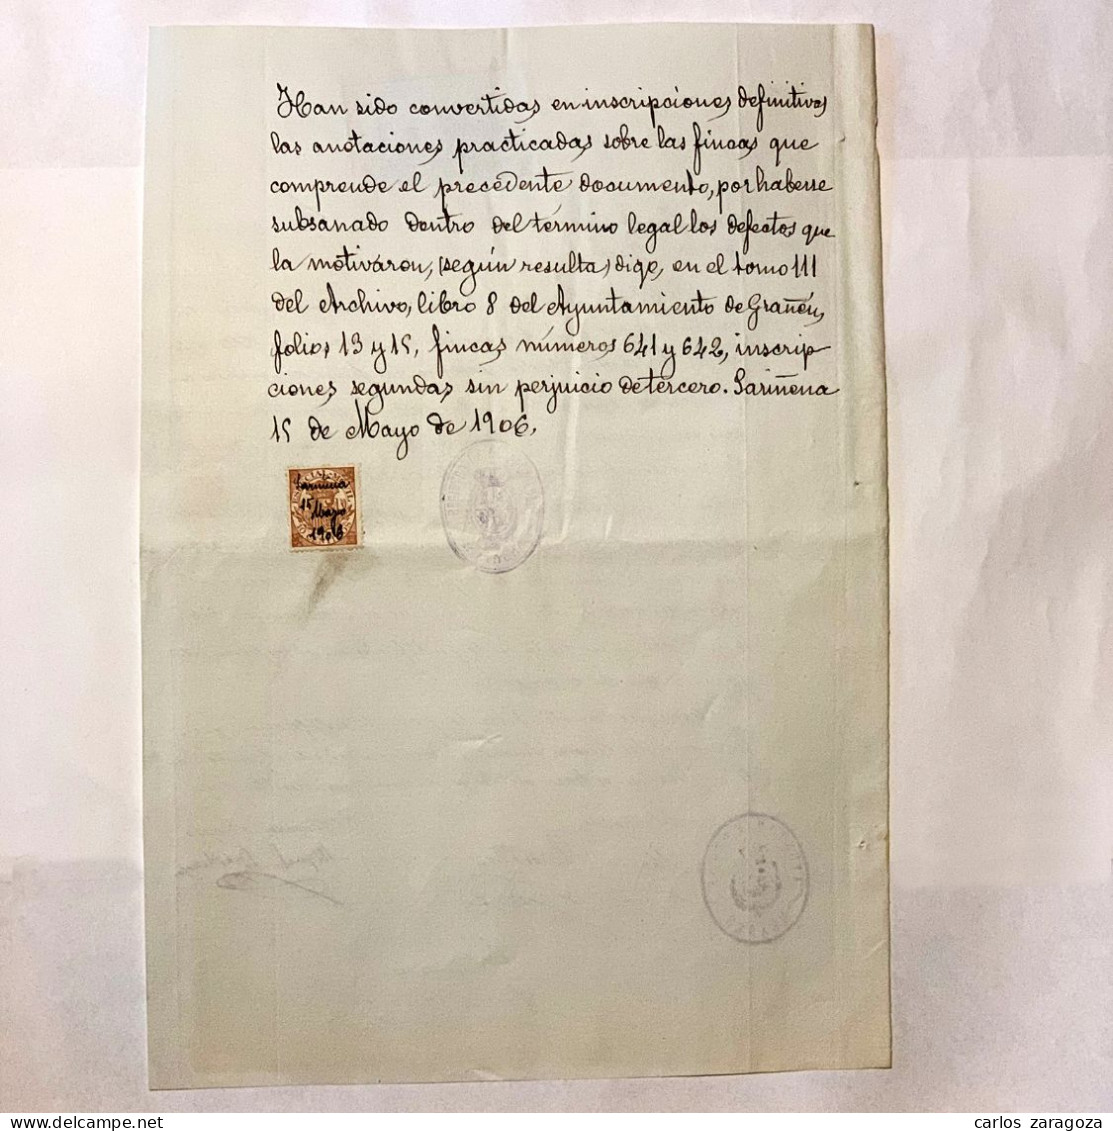 Han sido convertidas en inscripciones definitivas
las anotaciones practicadas sobre las fincas que
comprende el precedente documento, por haberse
subsanado dentro del término legal los defectos que
la motivaron, (según resulta) digo, en el tomo 111
del Archivo, libro 8 del Ayuntamiento de Grañén,
folios 13 y 15, fincas números 641 y 642, inscrip
ciones segundas sin perjuicio de tercero. Sariñena
15 de Mayo de 1906.
Sariñena
15
Mayo
1906
carlos zaragoza